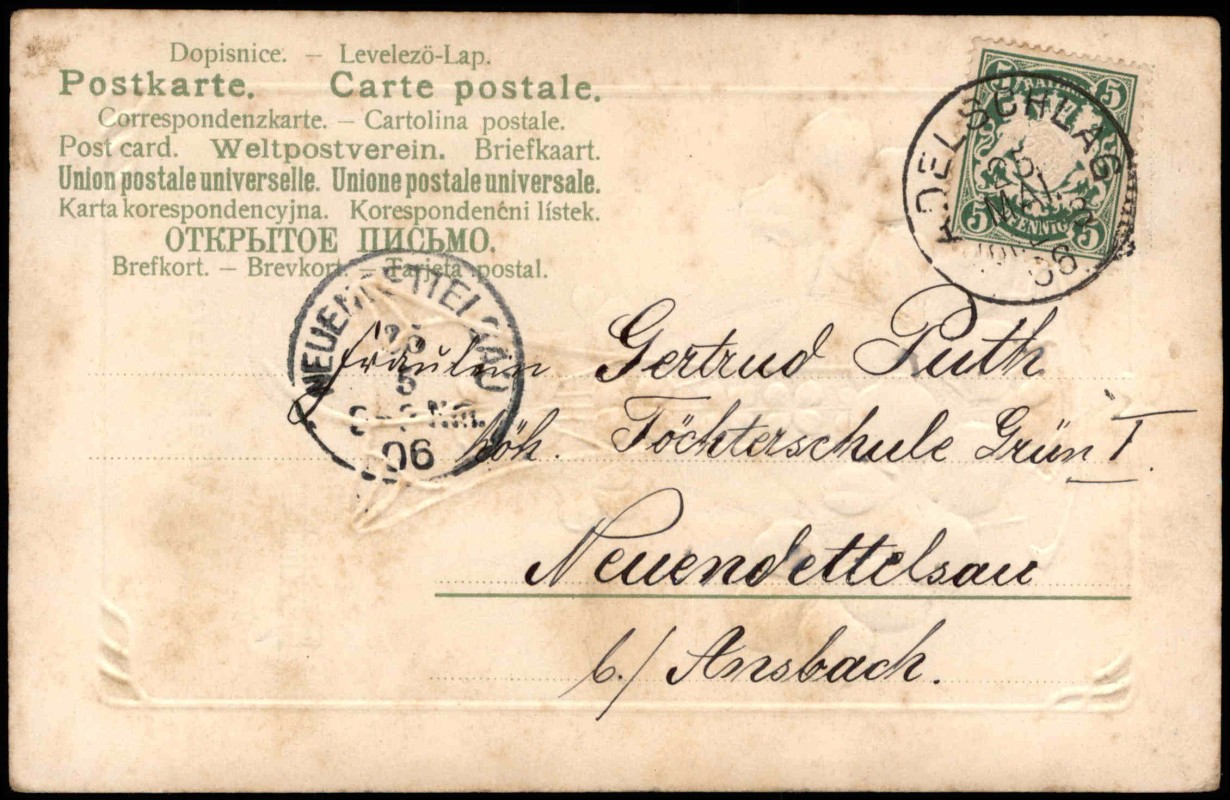 Dopisnice. – Levelezö-Lap.
Postkarte. Carte postale.
Correspondenzkarte. – Cartolina postale.
Post card. Weltpostverein. Briefkaart.
Union postale universelle. Unione postale universale.
Karta korespondencyjna. Korespondenčni lístek.
ОТКРЫТОЕ ПИСЬМО.
Brefkort. – Brevkort. – Tarjeta postal.
5 5
5 PFENNIG 5
ADELSCHLAG
MAI
NEUENDETTELSAU
5
Nm.
06
Fräulein Gertrud Puth
höh. Töchterschule Grün I.
Neuendettelsau
b./ Ansbach.